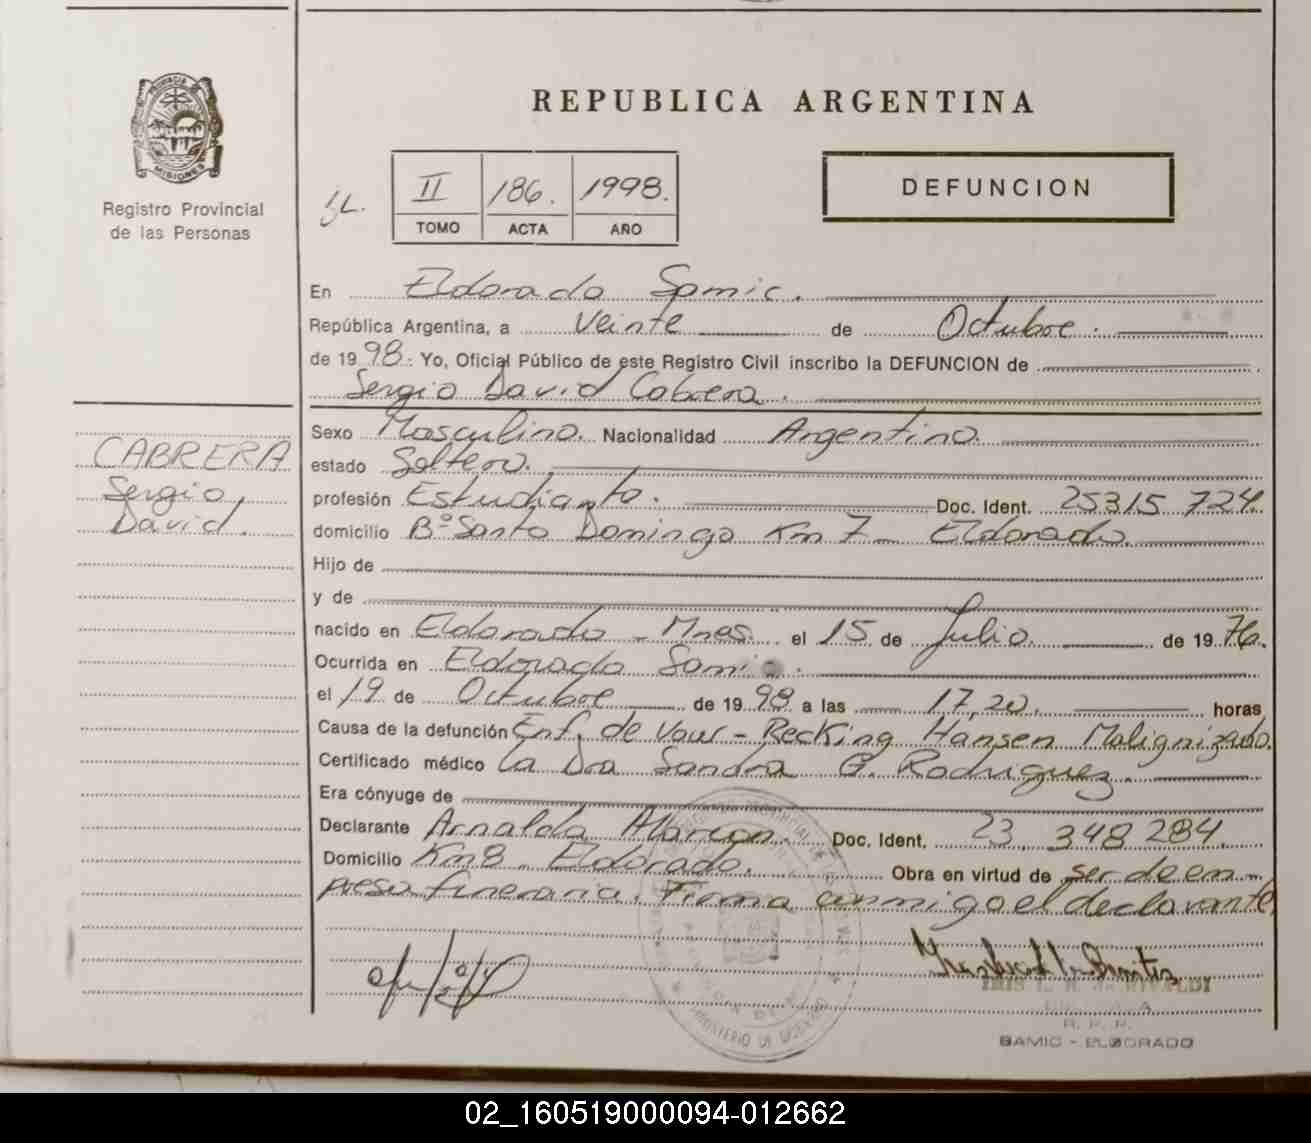 PROVINCIA DE
MISIONES
Registro Provincial
de las Personas
REPUBLICA ARGENTINA
II 186. 1998.
TOMO ACTA AÑO
DEFUNCION
En Eldorado Samic.
República Argentina, a veinte de Octubre.
de 1998. Yo, Oficial Público de este Registro Civil inscribo la DEFUNCION de
Sergio David Cabrera.
CABRERA
Sergio,
David.
Sexo Masculino. Nacionalidad Argentino.
estado Soltero.
profesión Estudiante. Doc. Ident. 25315 724.
domicilio B° Santo Domingo Km 7 - Eldorado.
Hijo de
y de
nacido en Eldorado - Mnes. el 15 de Julio. de 1976.
Ocurrida en Eldorado Samic.
el 19 de Octubre de 1998 a las 17,20. horas
Causa de la defunción Enf. de Vour - Recking Hansen Malignizado.
Certificado médico la Dra Sandra G. Rodriguez.
Era cónyuge de
Declarante Arnaldo Alarcon. Doc. Ident. 23. 348 284.
Domicilio Km 8 - Eldorado. Obra en virtud de ser de em-
presa funeraria. Firma conmigo el declarante
R. P. P.
SAMIC - ELDORADO
02_160519000094-012662